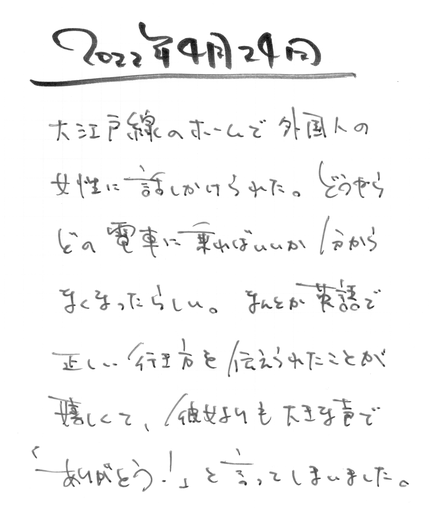 2022年4月24日
大江戸線のホームで外国人の
女性に話しかけられた。どうやら
どの電車に乗ればいいか分から
なくなったらしい。なんとか英語で
正しい行き方を伝えられたことが
嬉しくて、彼女よりも大きな声で
「ありがとう!」と言ってしまいました。